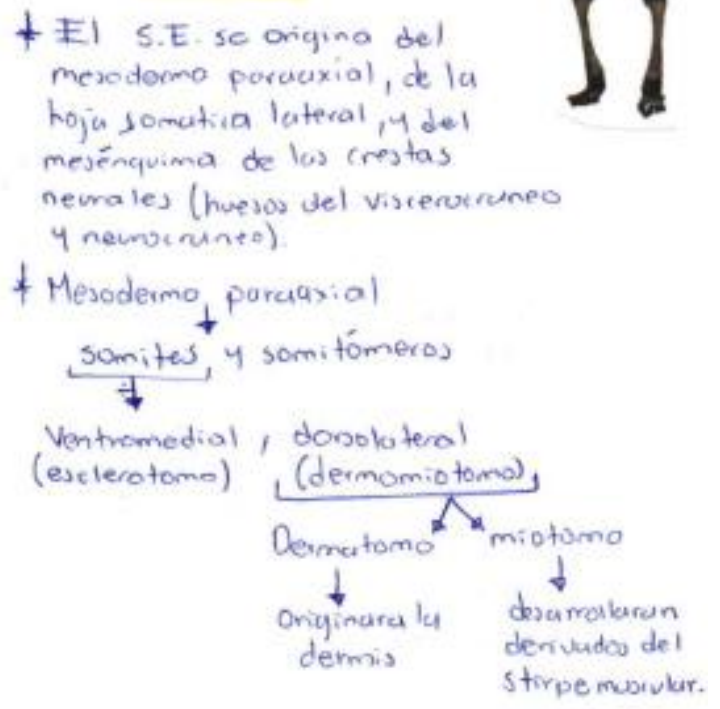 El S.E. se origina del
mesodermo paraaxial, de la
hoja somatica lateral, y del
mesénquima de las crestas
neurales (huesos del viscerocraneo
y neurocraneo).
Mesodermo paraaxial
somites, y somitómeros
Ventromedial, dorsolateral
(esclerotomo) (dermomiotomo),
Dermatomo miotomo
Originara la desarrollaran
dermis derivados del
stirpe muscular.